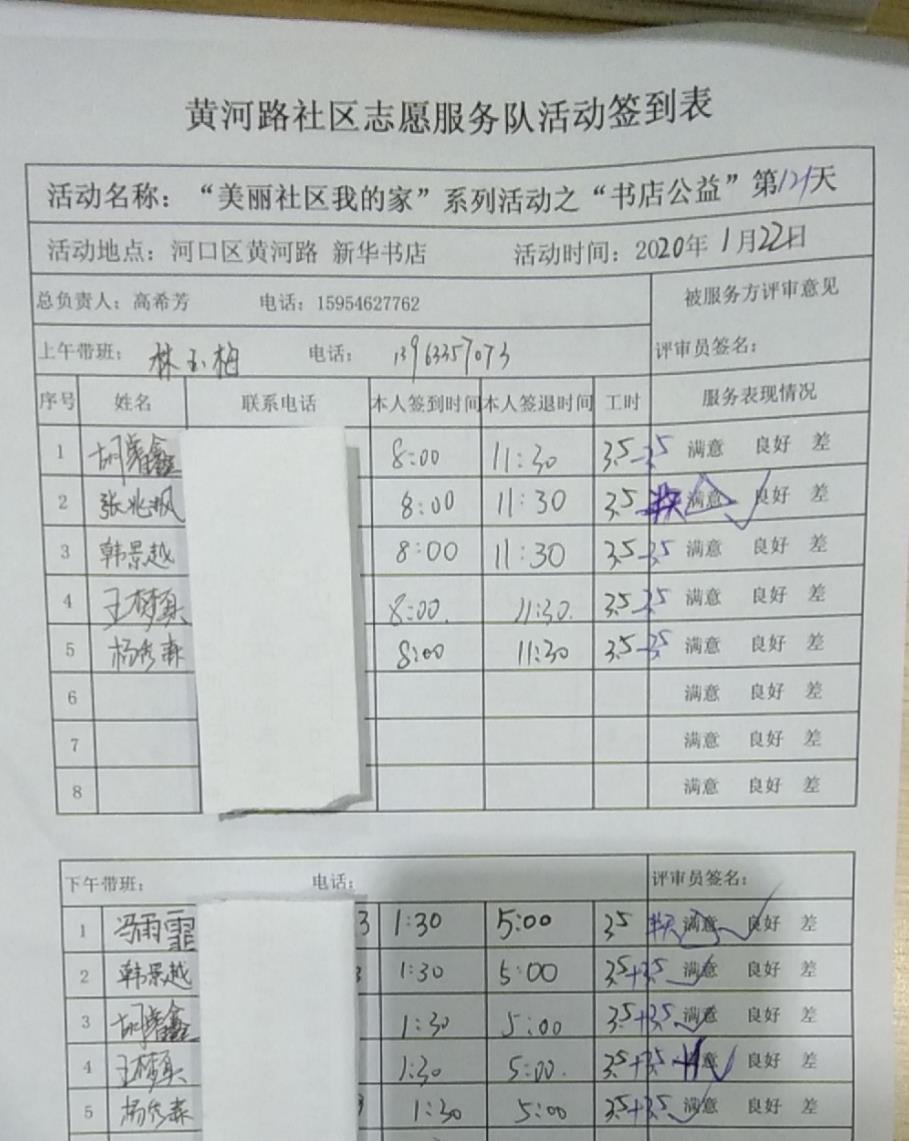 黄河路社区志愿服务队活动签到表
活动名称：“美丽社区我的家”系列活动之“书店公益”第121天
活动地点：河口区黄河路 新华书店 活动时间：2020年1月22日
总负责人：高希芳 电话：15954627762 被服务方评审意见
上午带班：林玉梅 电话：13963357073 评审员签名：
序号 姓名 联系电话 本人签到时间 本人签退时间 工时 服务表现情况
1 胡 鑫 8:00 11:30 3.5 3.5 满意 良好 差
2 张兆飒 8:00 11:30 3.5 半天 满意 良好 差
3 韩景越 8:00 11:30 3.5 3.5 满意 良好 差
4 王梦真 8:00 11:30 3.5 3.5 满意 良好 差
5 杨秀森 8:00 11:30 3.5 3.5 满意 良好 差
6 满意 良好 差
7 满意 良好 差
8 满意 良好 差
下午带班： 电话： 评审员签名：
1 冯雨霏 3 1:30 5:00 3.5 半天 满意 良好 差
2 韩景越 3 1:30 5:00 3.5+3.5 满意 良好 差
3 胡 鑫 1:30 5:00 3.5+3.5 满意 良好 差
4 王梦真 1:30 5:00 3.5+3.5 意 良好 差
5 杨秀森 1:30 5:00 3.5+3.5 满意 良好 差